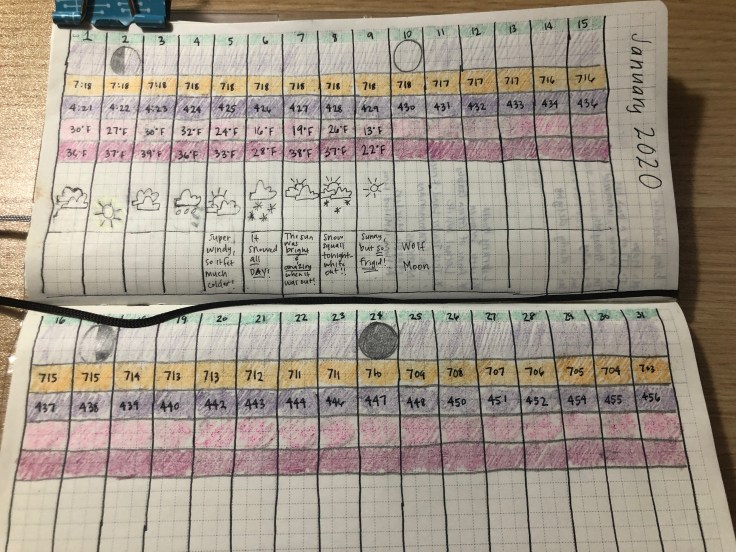 January 2020
1 2 3 4 5 6 7 8 9 10 11 12 13 14 15
7:18 7:18 7:18 718 718 718 718 718 718 718 717 717 717 716 716
4:21 4:22 4:23 424 425 426 427 428 429 430 431 432 433 434 436
30°F 27°F 30°F 32°F 24°F 16°F 19°F 26°F 13°F
36°F 37°F 39°F 36°F 33°F 28°F 38°F 37°F 22°F
Super
windy,
so it felt
much
colder!
It
snowed
all
DAY!
The sun
was
bright
&
amazing
when it
was out!
Snow
squall
tonight-
white
out!!
Sunny,
but so
frigid!
Wolf
Moon
16 19 20 21 22 23 24 25 26 27 28 29 30 31
715 715 714 713 713 712 711 711 710 709 708 707 706 705 704 703
437 438 439 440 442 443 444 446 447 448 450 451 452 454 455 456